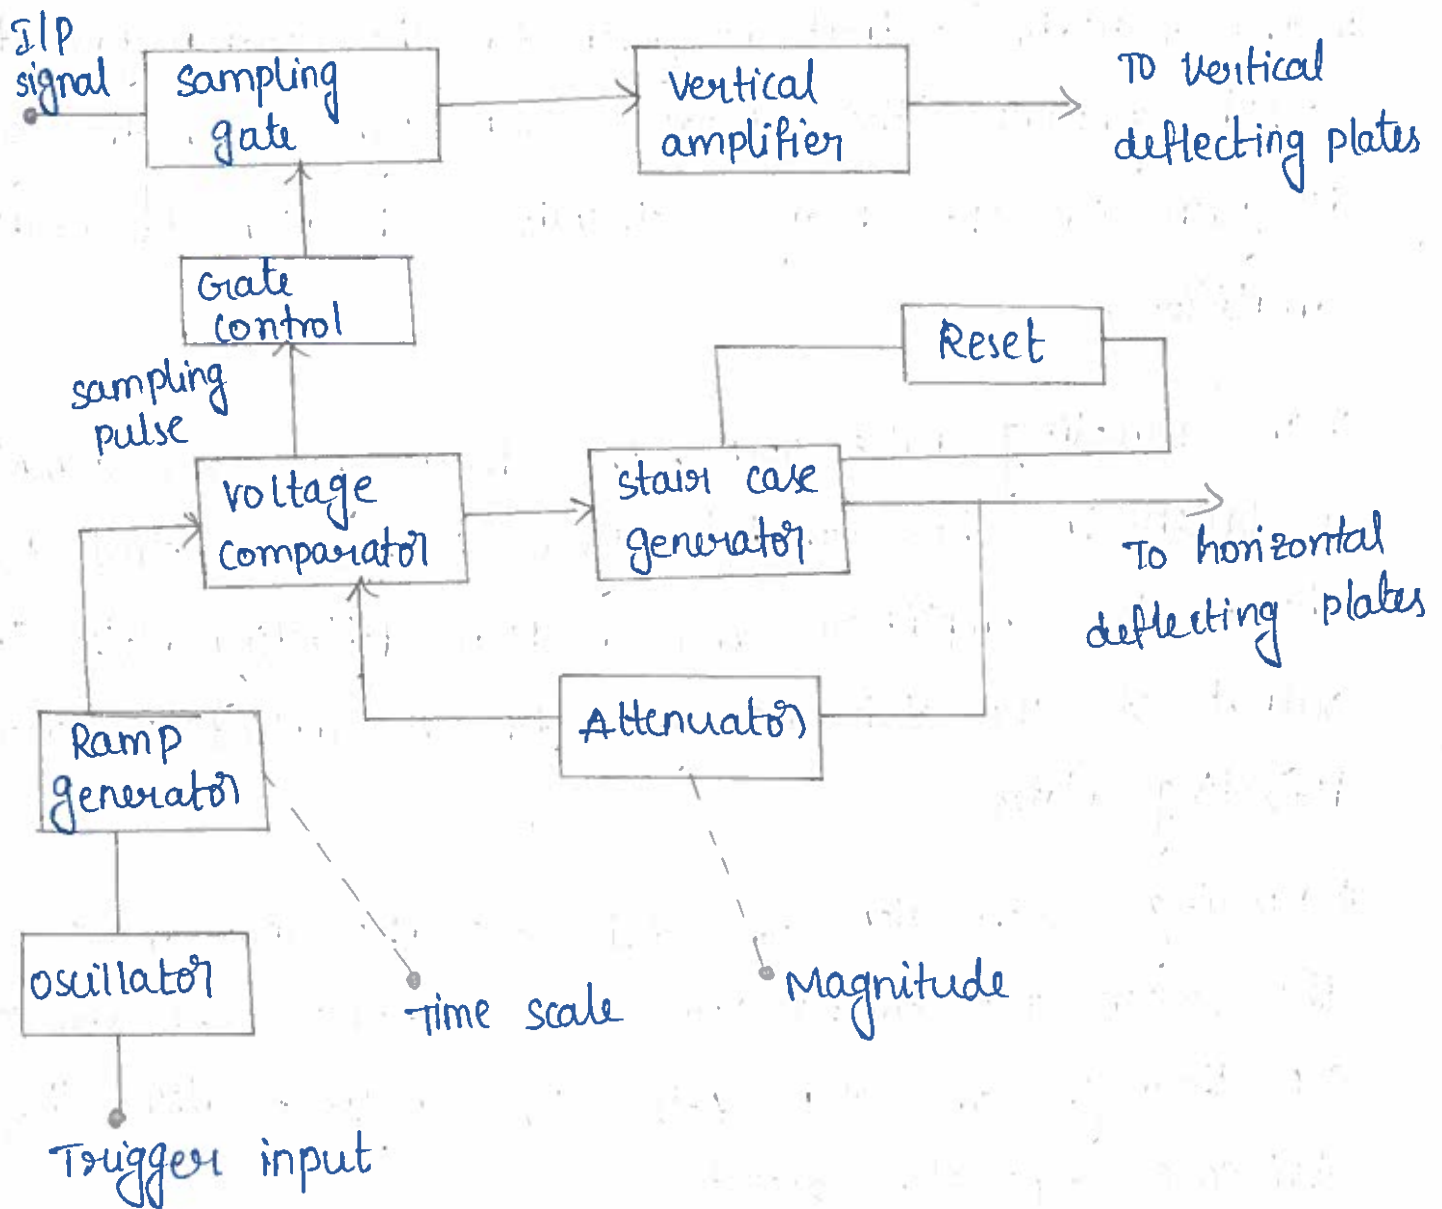 I/P
signal
Sampling
gate
Vertical
amplifier
To Vertical
deflecting plates
Gate
control
Reset
sampling
pulse
Voltage
comparator
stair case
generator
To horizontal
deflecting plates
Attenuator
Ramp
generator
oscillator
Time scale
Magnitude
Trigger input